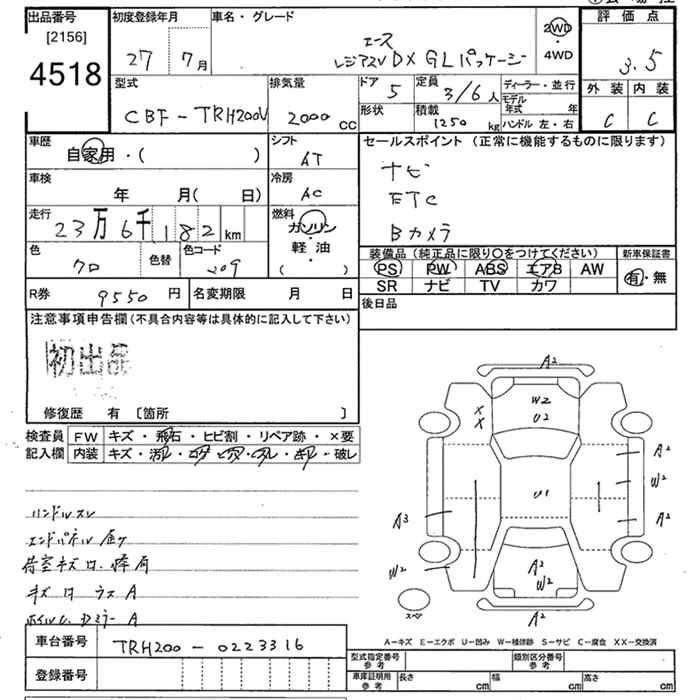 出品番号
[2156]
4518
初度登録年月
27 7月
車名・グレード
エース
レジアスV DX GLパッケージ
2WD
・
4WD
評価点
3.5
外装 内装
C C
型式
CBF-TRH200V
排気量
2000 cc
ドア 5
形状
定員 3/6人
積載 1250 kg
ディーラー・並行
モデル年式 年
ハンドル 左・右
車歴
自家用・( )
シフト
AT
車検
年 月( 日)
冷房
AC
走行
23万6千182 km
燃料
ガソリン
軽・油
( )
色
クロ
色替
色コード
209
R券 9550円
名変期限 月 日
セールスポイント (正常に機能するものに限ります)
ナビ
ETC
Bカメラ
装備品 (純正品に限り○をつけてください)
PS PW ABS エアB AW
SR ナビ TV カワ
新車保証書
有・無
後日品
注意事項申告欄(不具合内容等は具体的に記入して下さい)
初出品
修復歴 有 〔箇所 〕
検査員
記入欄
FW キズ・飛石・ヒビ割・リペア跡・×要
内装 キズ・汚れ・・・・・破レ
ハンドルスレ
エンドパネル
荷室キズ
キズ A
A
車台番号 TRH200-0223316
登録番号
A2
W2
U2
X
X
U1
A2
W2
A2
A3
W2
A2
W2
A2
スペア
A-キズ E-エクボ U-凹み W-補修跡 S-サビ C-腐食 XX-交換済
型式指定番号
参考
類別区分番号
参考
車庫証明用
参考
長さ cm
幅 cm
高さ cm